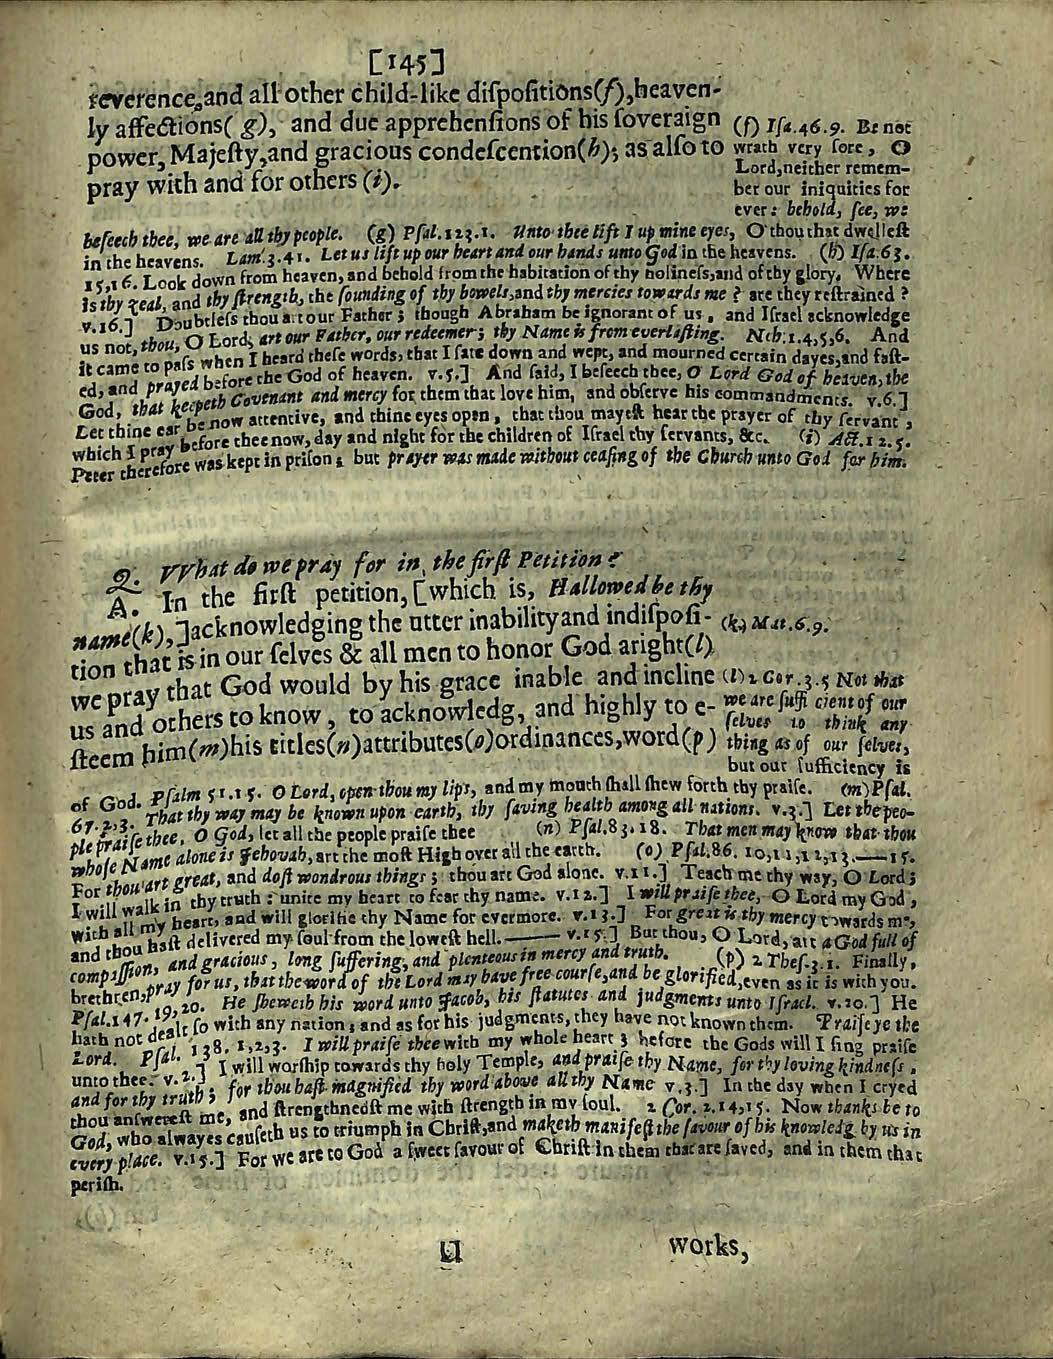 [145]
reverence,and all other child-like diſpoſitions(f),heaven-
ly affections( g), and due apprehenſions of his ſoveraign
power, Majeſty,and gracious condeſcention(h); as alſo to
pray with and for others (i).
(f) Iſa.46.9. Be not
wrath very ſore, O
Lord,neither remem-
ber our iniquities for
ever: behold, ſee, we
beſeech thee, we are all thy people. (g) Pſal.123.1. Unto thee lift I up mine eyes, O thou that dwelleſt
in the heavens. Lam.3.41. Let us lift up our heart and our hands unto God in the heavens. (h) Iſa.63.
15,16. Look down from heaven,and behold from the habitation of thy holineſs,and of thy glory, Where
is thy zeal, and thy ſtrength, the ſounding of thy bowels,and thy mercies towards me ? are they reſtrained ?
v.16.] Doubtleſs thou art our Father ; though Abraham be ignorant of us , and Iſrael acknowledge
us not, thou, O Lord, art our Father, our redeemer ; thy Name is from everlaſting. Neh.1.4,5,6. And
it came to paſs when I heard theſe words, that I ſate down and wept, and mourned certain dayes,and faſt-
ed, and prayed before the God of heaven. v.5.] And ſaid, I beſeech thee, O Lord God of heaven, the
God, that keepeth Covenant and mercy for them that love him, and obſerve his commandments. v.6.]
Let thine ear be now attentive, and thine eyes open , that thou mayeſt hear the prayer of thy ſervant ,
which I pray before thee now, day and night for the children of Iſrael thy ſervants, &c. (i) Act.12.5.
Peter therefore was kept in priſon ; but prayer was made without ceaſing of the Church unto God for him.
Q. VVhat do we pray for in the firſt Petition ?
A. In the firſt petition, [which is, Hallowed be thy
name(k),]acknowledging the utter inability and indiſpoſi-
tion that is in our ſelves & all men to honor God aright(l)
we pray that God would by his grace inable and incline
us and others to know , to acknowledg, and highly to e-
ſteem him(m)his titles(n)attributes(o)ordinances,word(p)
(k) Mat.6.9.
(l) 2 Cor.3.5 Not that
we are ſufficient of our
ſelves to think any
thing as of our ſelves,
but our ſufficiency is
of God. Pſalm 51.15. O Lord, open thou my lips, and my mouth ſhall ſhew forth thy praiſe. (m)Pſal.
67.2,3. That thy way may be known upon earth, thy ſaving health among all nations. v.3.] Let the peo-
ple praiſe thee, O God, let all the people praiſe thee (n) Pſal.83.18. That men may know that thou
whoſe Name alone is Jehovah, art the moſt High over all the earth. (o) Pſal.86. 10,11,12,13.—15.
For thou art great, and doſt wondrous things ; thou art God alone. v.11.] Teach me thy way, O Lord ;
I will walk in thy truth : unite my heart to fear thy name. v.12.] I will praiſe thee, O Lord my God ,
with all my heart, and will glorifie thy Name for evermore. v.13.] For great is thy mercy towards me,
and thou haſt delivered my ſoul from the loweſt hell.—— v.15.] But thou, O Lord, art a God full of
compaſſion, and gracious , long ſuffering, and plenteous in mercy and truth. (p) 2 Theſ.3.1. Finally,
brethren, pray for us, that the word of the Lord may have free courſe,and be glorified,even as it is with you.
Pſal.147.19,20. He ſheweth his word unto Jacob, his ſtatutes and judgments unto Iſrael. v.20.] He
hath not dealt ſo with any nation ; and as for his judgments, they have not known them. Praiſe ye the
Lord. Pſal. 138. 1,2,3. I will praiſe thee with my whole heart ; before the Gods will I ſing praiſe
unto thee. v.2.] I will worſhip towards thy holy Temple, and praiſe thy Name, for thy loving kindneſs ,
and for thy truth ; for thou haſt magnified thy word above all thy Name v.3.] In the day when I cryed
thou anſwereſt me, and ſtrengthnedſt me with ſtrength in my ſoul. 2 Cor. 2.14,15. Now thanks be to
God, who alwayes cauſeth us to triumph in Chriſt,and maketh manifeſt the ſavour of his knowledg by us in
every place. v.15.] For we are to God a ſweet ſavour of Chriſt in them that are ſaved, and in them that
periſh.
U works,